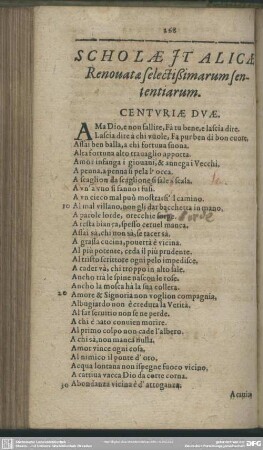 268
SCHOLÆ ITALICÆ
Renovatæ selectißimarum sen-
tentiarum.
CENTVRIÆ DVÆ.
AMa Dio, e non fallire, Fà tu bene, e lascia dire.
Lascia dire à chi vuole, Fa pur ben di bon cuore.
Assai ben balla, a chi fortuna suona.
Alta fortuna alto travaglio apporta.
Amor infanga i giovani, & annega i Vecchi.
A penna, a penna si pela l'occa.
A scaglion da scaglione si sale scala.
A vn' a vno si fanno i fusi.
A vn cieco mal può mostrarsi 'l camino.
10 Al mal villano, non gli dar bacchetta in mano.
A parole lorde, orecchie sorde
A testa bianca, spesso cervel manca.
Assai sà, chi non sà, se tacer sà.
A grassa cucina, povertà è vicina.
Al più potente, ceda il più prudente.
Al tristo scrittore ogni pelo impedisce.
A cader và, chi troppo in alto sale.
Ancho tra le spine nascon le rose.
Ancho la mosca hà la sua collera.
20 Amore & Signoria non voglion compagnia,
Albugiardo non è creduta la Verità.
Al far servitio non se ne perde.
A chi è nato convien morire.
Al primo colpo non cade l'albero.
A chi sà, non manca nulla.
Amor vince ogni cosa.
Al nimico il ponte d' oro.
Acqua lontana non ispegne fuoco vicino.
A cattiva vacca Dio da corte corna.
30 Abondanza vicina è d' arroganza.